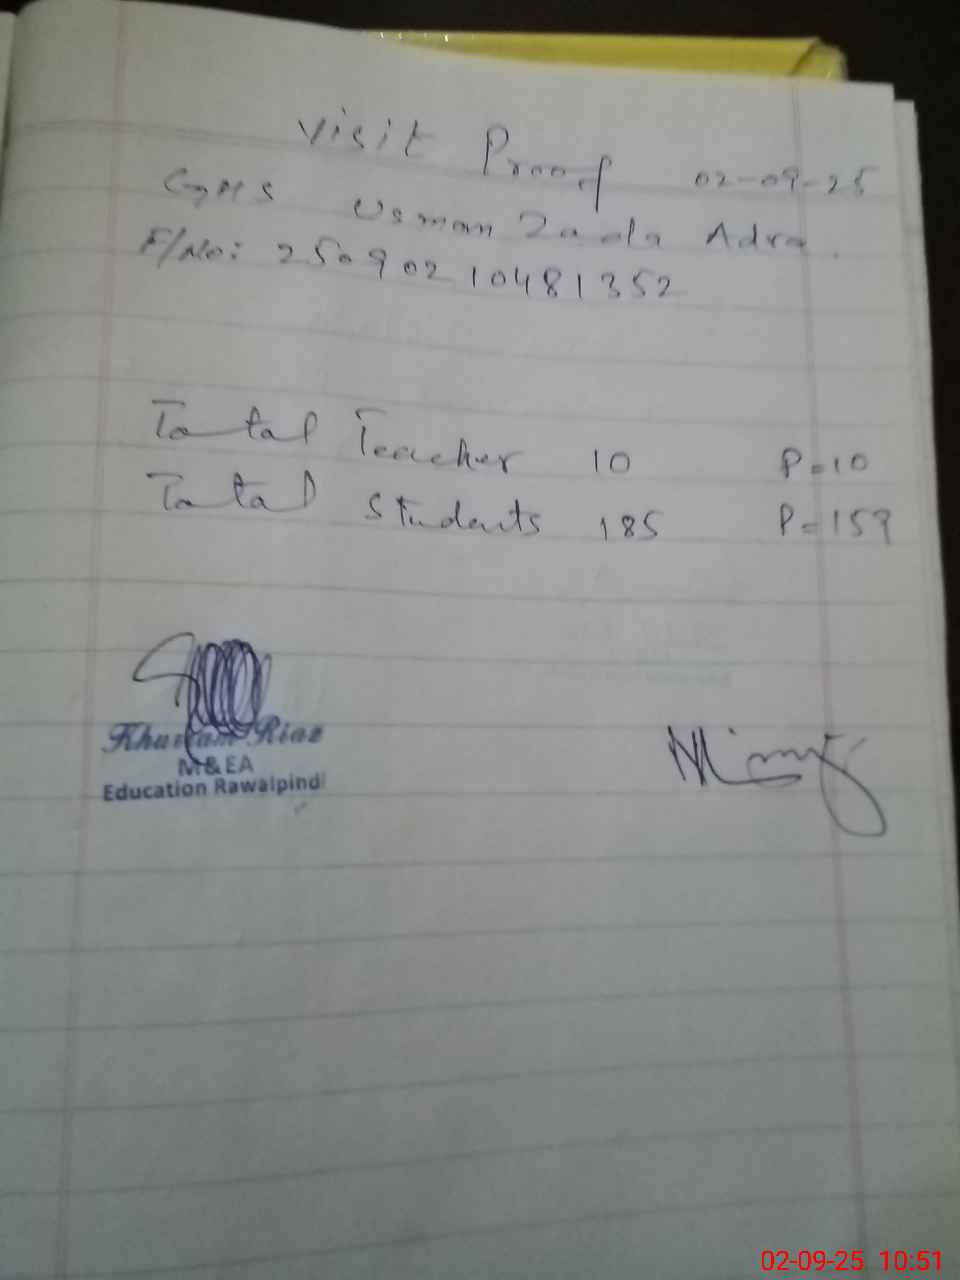 Visit Proof 02-09-25
GMS Usman Zada Adra.
F/No: 25090210481352
Total Teacher 10 P=10
Total Students 185 P=159
Khurram Riaz
M&EA
Education Rawalpindi
02-09-25 10:51